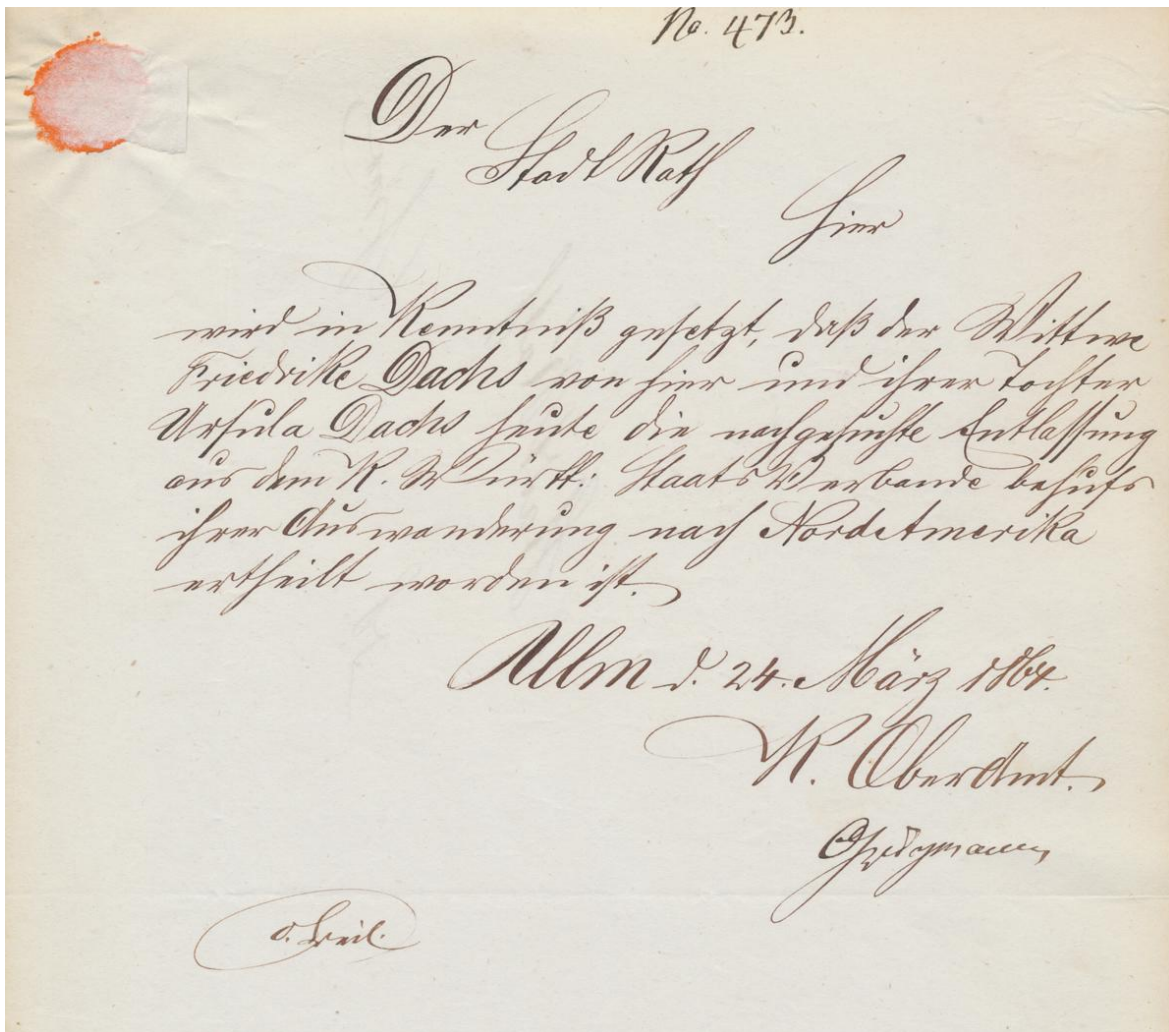 No. 473.
Der
Stadt Rath
hier
wird in Kenntniß gesetzt, daß der Wittwe
Friedrike Dachs von hier und ihrer Tochter
Ursula Dachs heute die nachgesuchte Entlassung
aus dem K. Württ: Staats Verbande behufs
ihrer Auswanderung nach NordAmerika
ertheilt worden ist.
Ulm d. 24. März 1864.
K. OberAmt.
o. Beil.